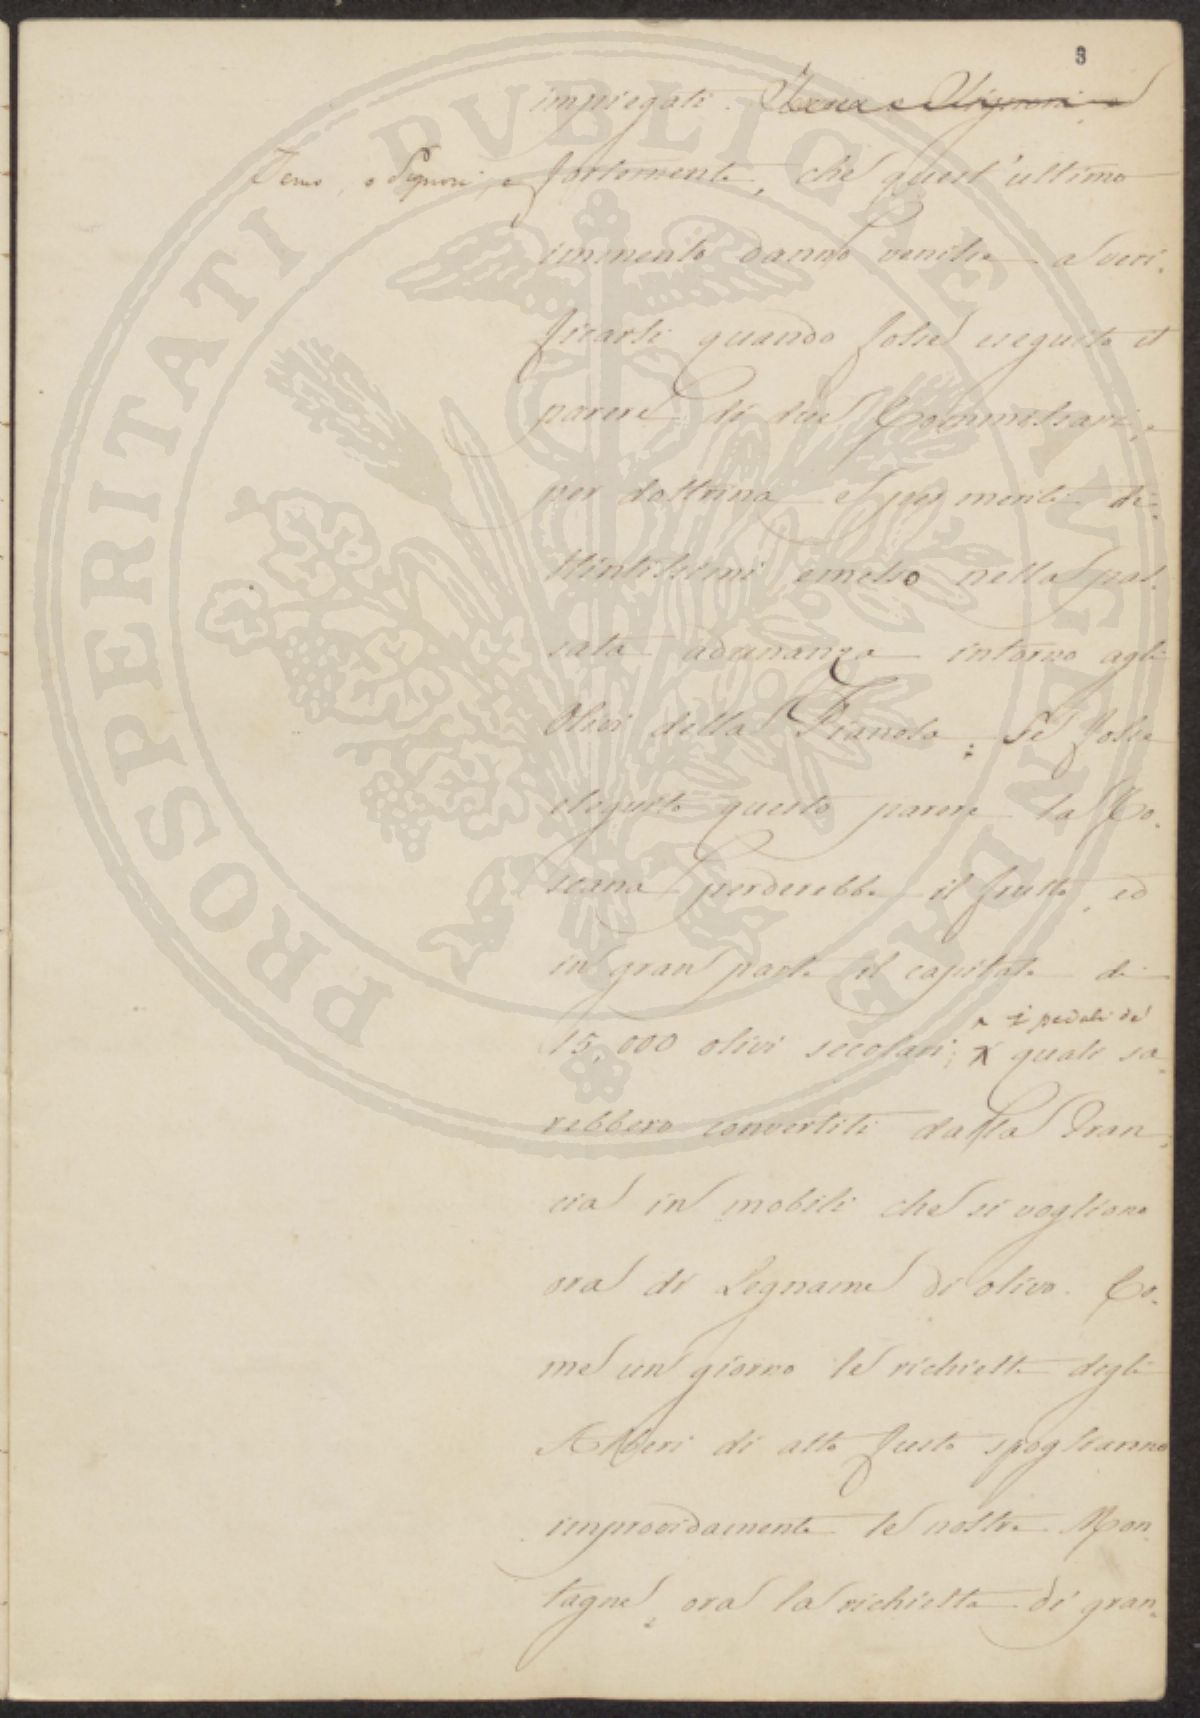 3
impiegati.
Temo, o Signori, e fortemente, che quest'ultimo
immento danno venisse a veri-
ficarsi quando fosse eseguito il
parere di due Commissarj,
per dottrina e per meriti di-
stintissimi emesso nella pas-
sata adunanza intorno agli
Olivi della Pianola; Se fosse
eseguito questo parere la To-
scana perderebbe il frutto, ed
in gran parte il capitale di
i pedali de'
15,000 olivi secolari; quali sa-
rebbero convertiti dalla Fran-
cia in mobili che si vogliono
ora di Legname di olivo. Co-
me un giorno le richieste degli
Alberi di alto fusto spogliarono
improvidamente le nostre Mon
tagne, ora la richiesta di gran-
PROSPERITATI PVBLICAE AVGENDAE